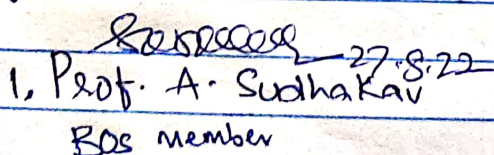 27.8.22
1. Prof. A. Sudhakar
BOS member